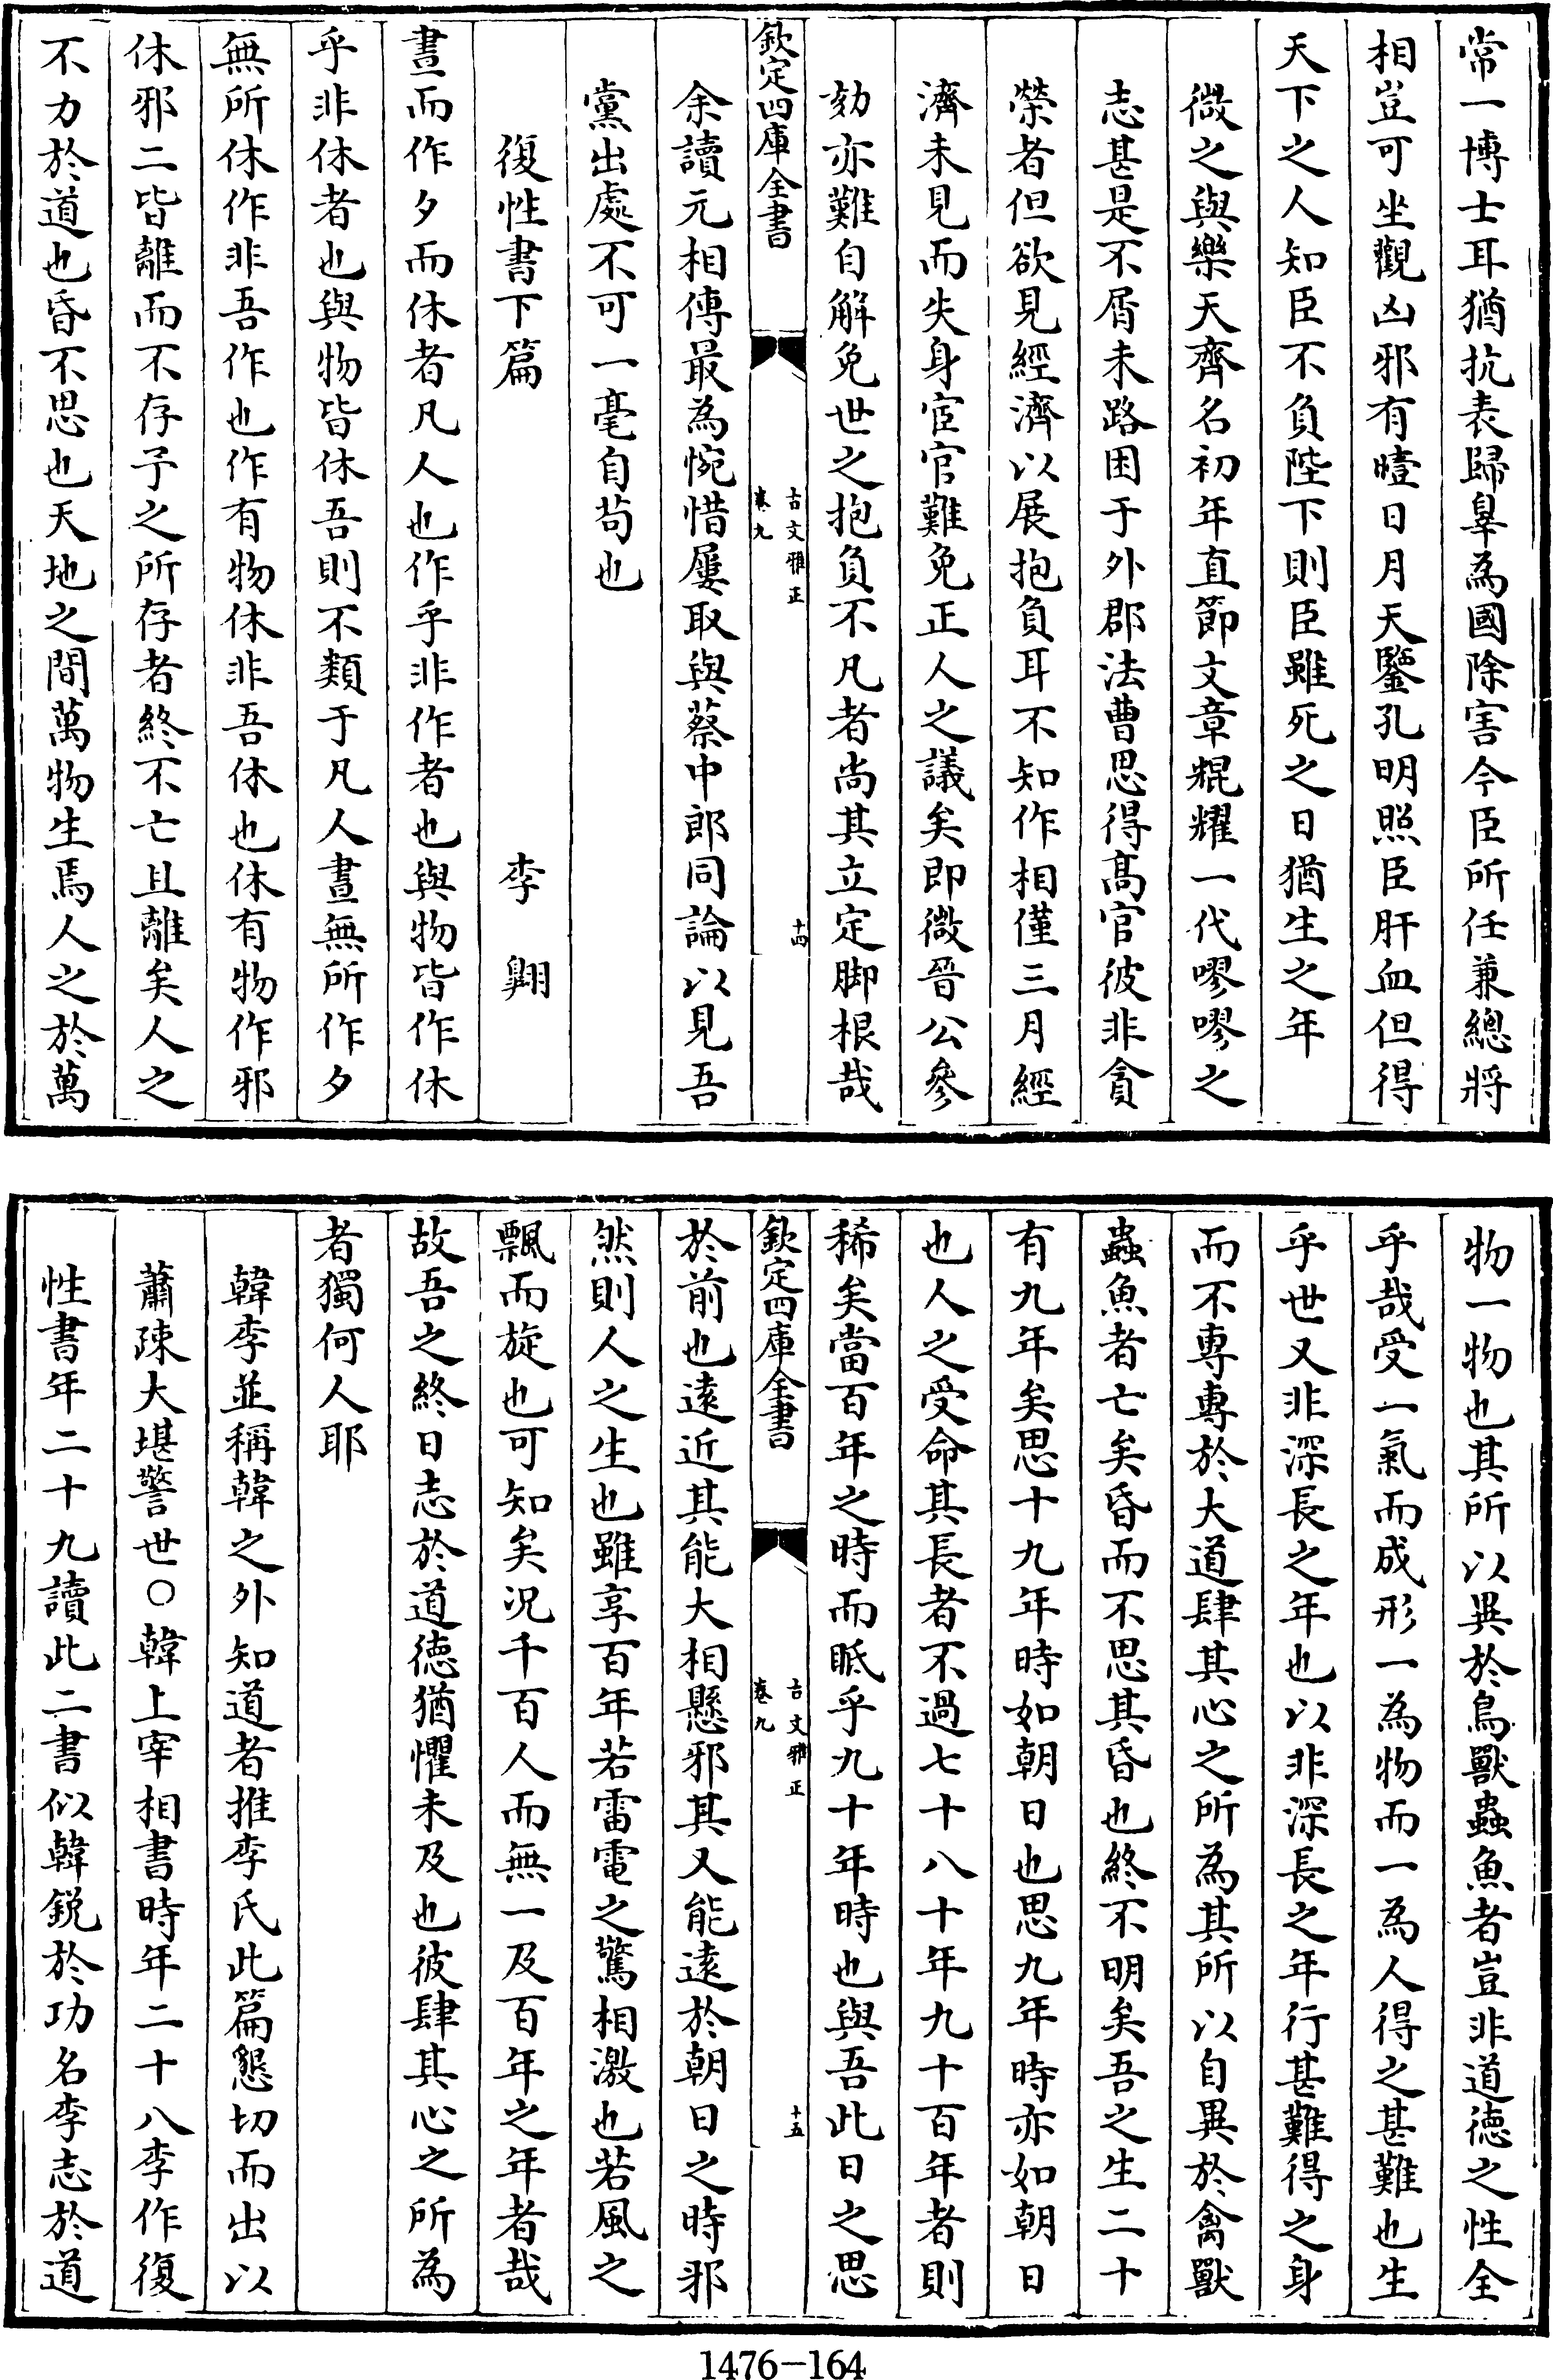 常一博士耳猶抗表歸辠為國除害今臣所任兼總將
相豈可坐觀凶邪有曀日月天鑒孔明照臣肝血但得
天下之人知臣不負陛下則臣雖死之日猶生之年
微之與樂天齊名初年直節文章焜耀一代嘐嘐之
志甚是不屑未路困于外郡法曹思得髙官彼非貪
榮者但欲見經濟以展抱負耳不知作相僅三月經
濟未見而失身宦官難免正人之議矣即微晉公參
劾亦難自解免世之抱負不凡者尚其立定脚根哉
欽定四庫全書
古文雅正
卷九
十四
余讀元相傳最為惋惜屢取與蔡中郎同論以見吾
黨出處不可一毫自茍也
復性書下篇
李翺
晝而作夕而休者凡人也作乎非作者也與物皆作休
乎非休者也與物皆休吾則不類于凡人晝無所作夕
無所休作非吾作也作有物休非吾休也休有物作邪
休邪二皆離而不存予之所存者終不亡且離矣人之
不力於道也昏不思也天地之間萬物生焉人之於萬
物一物也其所以異於鳥獸蟲魚者豈非道徳之性全
乎哉受一氣而成形一為物而一為人得之甚難也生
乎世又非深長之年也以非深長之年行甚難得之身
而不專專於大道肆其心之所為其所以自異於禽獸
蟲魚者亡矣昏而不思其昏也終不明矣吾之生二十
有九年矣思十九年時如朝日也思九年時亦如朝日
也人之受命其長者不過七十八十年九十百年者則
稀矣當百年之時而眡乎九十年時也與吾此日之思
欽定四庫全書
古文雅正
卷九
十五
於前也逺近其能大相懸邪其又能逺於朝日之時邪
然則人之生也雖享百年若雷電之驚相激也若風之
飄而旋也可知矣况千百人而無一及百年之年者哉
故吾之終日志於道徳猶懼未及也彼肆其心之所為
者獨何人耶
韓李並稱韓之外知道者推李氏此篇懇切而出以
蕭疎大堪警世○韓上宰相書時年二十八李作復
性書年二十九讀此二書似韓鋭於功名李志於道
1476-164